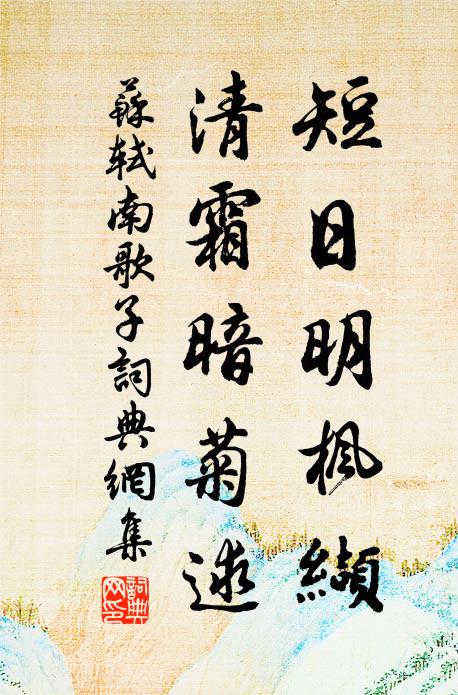 短日明楓纈
清霜暗菊逑
蘇軾南歌子詞典網集
詞典
网